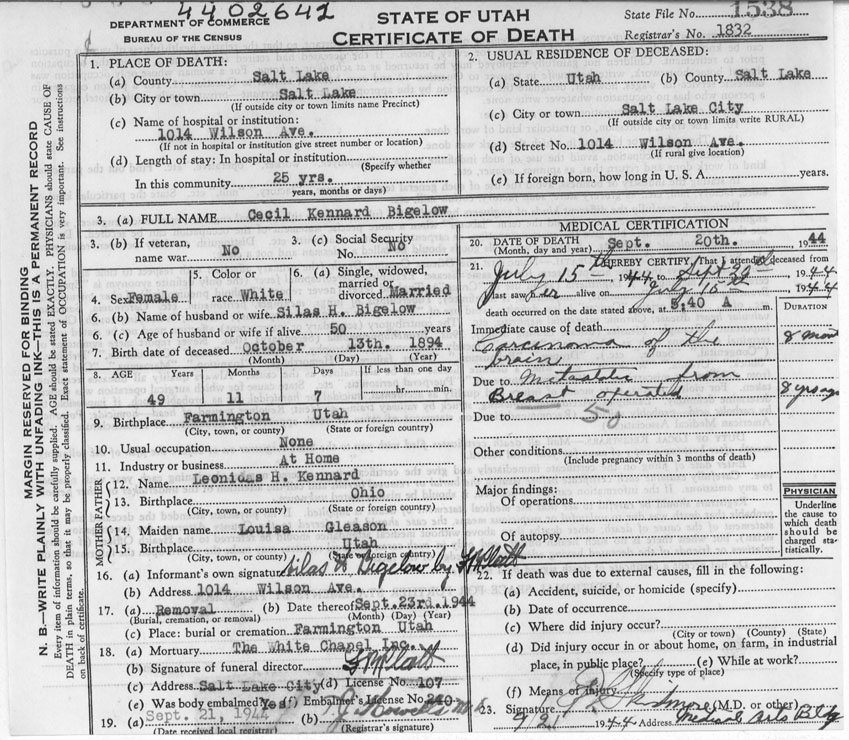 4402642
DEPARTMENT OF COMMERCE
BUREAU OF THE CENSUS
STATE OF UTAH
CERTIFICATE OF DEATH
State File No. 1538
Registrar's No. 1832
MARGIN RESERVED FOR BINDING
N. B.—WRITE PLAINLY WITH UNFADING INK—THIS IS A PERMANENT RECORD
Every item of information should be carefully supplied. AGE should be stated EXACTLY. PHYSICIANS should state CAUSE OF
DEATH in plain terms, so that it may be properly classified. Exact statement of OCCUPATION is very important. See instructions
on back of certificate.
1. PLACE OF DEATH:
(a) County Salt Lake
(b) City or town Salt Lake
(If outside city or town limits name Precinct)
(c) Name of hospital or institution:
1014 Wilson Ave.
(If not in hospital or institution give street number or location)
(d) Length of stay: In hospital or institution
(Specify whether
In this community 25 yrs.
years, months or days)
2. USUAL RESIDENCE OF DECEASED:
(a) State Utah (b) County Salt Lake
(c) City or town Salt Lake City
(If outside city or town limits write RURAL)
(d) Street No. 1014 Wilson Ave.
(If rural give location)
(e) If foreign born, how long in U. S. A years.
3. (a) FULL NAME Cecil Kennard Bigelow
3. (b) If veteran, name war No
3. (c) Social Security No. No
4. Sex Female
5. Color or race White
6. (a) Single, widowed, married or divorced Married
6. (b) Name of husband or wife Silas H. Bigelow
6. (c) Age of husband or wife if alive 50 years
7. Birth date of deceased October 13th. 1894
(Month) (Day) (Year)
8. AGE Years Months Days If less than one day
49 11 7 hr. min.
9. Birthplace Farmington Utah
(City, town, or county) (State or foreign country)
10. Usual occupation None
11. Industry or business At Home
FATHER
12. Name Leonidas H. Kennard
13. Birthplace Ohio
(City, town, or county) (State or foreign country)
MOTHER
14. Maiden name Louisa Gleason
15. Birthplace Utah
(City, town, or county) (State or foreign country)
16. (a) Informant's own signature Silas H Bigelow by
(b) Address 1014 Wilson Ave.
17. (a) Removal (b) Date thereof Sept. 23rd. 1944
(Burial, cremation, or removal) (Month) (Day) (Year)
(c) Place: burial or cremation Farmington Utah
18. (a) Mortuary The White Chapel Inc.
(b) Signature of funeral director
(c) Address Salt Lake City (d) License No. 107
(e) Was body embalmed Yes (f) Embalmer's License No. 240
19. (a) Sept. 21, 1944 (b)
(Date received local registrar) (Registrar's signature)
MEDICAL CERTIFICATION
20. DATE OF DEATH Sept. 20th. 1944
(Month, day and year)
21. I HEREBY CERTIFY, That I attended deceased from
July 15th, 1944, to Sept 1944
I last saw her alive on July 15th 1944
death occurred on the date stated above, at 5.40 A m.
DURATION
Immediate cause of death
Carcinoma of the 8 mos
brain
Due to Metastatic from
Breast operated 8 yrs ago
50
Due to
Other conditions
(Include pregnancy within 3 months of death)
Major findings:
Of operations
Of autopsy
PHYSICIAN
Underline
the cause to
which death
should be
charged sta-
tistically.
22. If death was due to external causes, fill in the following:
(a) Accident, suicide, or homicide (specify)
(b) Date of occurrence
(c) Where did injury occur?
(City or town) (County) (State)
(d) Did injury occur in or about home, on farm, in industrial
place, in public place? (e) While at work?
(Specify type of place)
(f) Means of injury
23. Signature (M.D. or other)
9/21 1944 Address Medical Arts Bldg